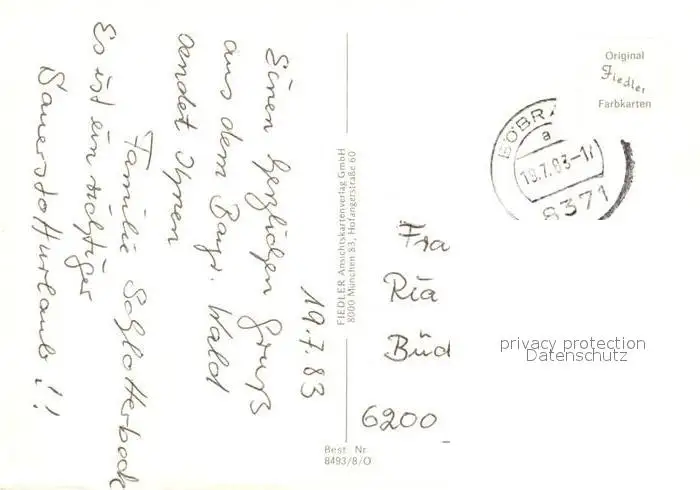 19.7.83
Einen herzlichen Gruß
aus dem Bayr. Wald
sendet Ihnen
Familie Schlotterbode
Es ist ein richtiger
Sauerstoffurlaub!!
FIEDLER Ansichtskartenverlag GmbH
8000 München 83, Hofangerstraße 60
Best Nr
8493/8/O
Original
Fiedler
Farbkarten
BÖBRA
a
19.7.83-17
8371
Fra
Ria
Büd
6200
privacy protection
Datenschutz